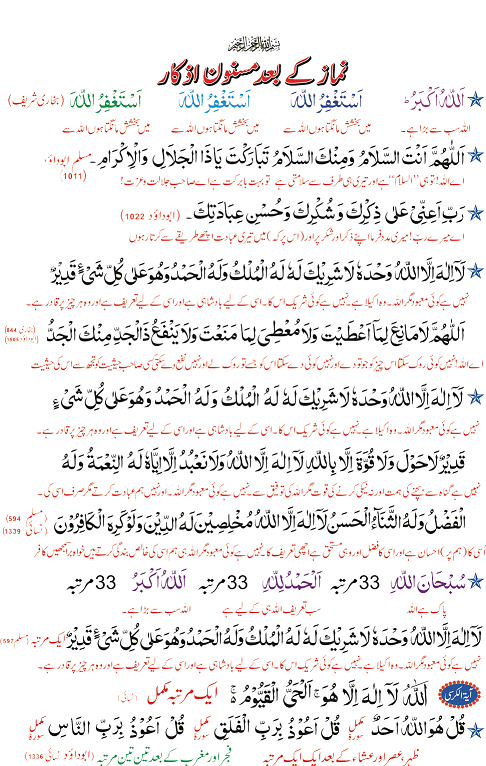 بسم الله الرحمن الرحيم
نماز کے بعد مسنون اذکار
اَللّٰهُ اَكْبَرُ اَسْتَغْفِرُ اللّٰهَ اَسْتَغْفِرُ اللّٰهَ اَسْتَغْفِرُ اللّٰهَ (بخاری شریف)
اللہ سب سے بڑا ہے۔ میں بخشش مانگتا ہوں اللہ سے میں بخشش مانگتا ہوں اللہ سے میں بخشش مانگتا ہوں اللہ سے
اَللّٰهُمَّ اَنْتَ السَّلَامُ وَمِنْكَ السَّلَامُ تَبَارَكْتَ يَاذَا الْجَلَالِ وَالْاِكْرَامِ۔ (مسلم ابوداؤد، 1011)
اے اللہ! تو ہی "السلام" ہے اور تیری ہی طرف سے سلامتی ہے تو بہت بابرکت ہے اے صاحب جلالت و عزت!
رَبِّ اَعِنِّىْ عَلٰى ذِكْرِكَ وَشُكْرِكَ وَحُسْنِ عِبَادَتِكَ۔ (ابوداؤد 1022)
اے میرے رب! میری مدد فرما اپنے ذکر اور شکر پر اور (اس پر کہ) میں تیری عبادت اچھے طریقے سے کرتا رہوں
لَآ اِلٰهَ اِلَّا اللّٰهُ وَحْدَهٗ لَا شَرِيْكَ لَهٗ لَهُ الْمُلْكُ وَلَهُ الْحَمْدُ وَهُوَ عَلٰى كُلِّ شَىْءٍ قَدِيْرٌ
نہیں ہے کوئی معبود مگر اللہ۔ وہ اکیلا ہے نہیں ہے کوئی شریک اس کا۔ اسی کے لیے بادشاہی ہے اور اسی کے لیے تعریف ہے اور وہ ہر چیز پر قادر ہے۔
اَللّٰهُمَّ لَا مَانِعَ لِمَا اَعْطَيْتَ وَلَا مُعْطِىَ لِمَا مَنَعْتَ وَلَا يَنْفَعُ ذَا الْجَدِّ مِنْكَ الْجَدُّ (بخاری 844 ابوداؤد 1505)
اے اللہ! نہیں کوئی روک سکتا اس چیز کو جو تو دے اور نہیں کوئی دے سکتا اس کو جسے تو روک لے اور نہیں نفع دے سکتی کسی صاحب حیثیت کو تجھ سے اس کی حیثیت
لَآ اِلٰهَ اِلَّا اللّٰهُ وَحْدَهٗ لَا شَرِيْكَ لَهٗ لَهُ الْمُلْكُ وَلَهُ الْحَمْدُ وَهُوَ عَلٰى كُلِّ شَىْءٍ
نہیں ہے کوئی معبود مگر اللہ۔ وہ اکیلا ہے نہیں ہے کوئی شریک اس کا۔ اسی کے لیے بادشاہی ہے اور اسی کے لیے تعریف ہے اور وہ ہر چیز پر قادر ہے۔
قَدِيْرٌ لَا حَوْلَ وَلَا قُوَّةَ اِلَّا بِاللّٰهِ لَآ اِلٰهَ اِلَّا اللّٰهُ وَلَا نَعْبُدُ اِلَّا اِيَّاهُ لَهُ النِّعْمَةُ وَلَهُ
نہیں ہے گناہ سے بچنے کی ہمت اور نہ نیکی کرنے کی قوت مگر اللہ کی توفیق سے نہیں ہے کوئی معبود مگر اللہ۔ اور نہیں ہم عبادت کرتے مگر صرف اسی کی۔
الْفَضْلُ وَلَهُ الثَّنَآءُ الْحَسَنُ لَآ اِلٰهَ اِلَّا اللّٰهُ مُخْلِصِيْنَ لَهُ الدِّيْنَ وَلَوْ كَرِهَ الْكَافِرُوْنَ (مسلم 594 نسائی 1339)
اسی کا (ہم پر) احسان ہے اور اسی کا فضل اور وہی مستحق ہے اچھی تعریف کا نہیں ہے کوئی معبود مگر اللہ ہی ہم اسی کی خالص بندگی کرتے ہیں خواہ برا سمجھیں کافر
سُبْحَانَ اللّٰهِ 33 مرتبہ اَلْحَمْدُ لِلّٰهِ 33 مرتبہ اَللّٰهُ اَكْبَرُ 33 مرتبہ
پاک ہے اللہ سب تعریف اللہ ہی کے لیے ہے اللہ سب سے بڑا ہے۔
لَآ اِلٰهَ اِلَّا اللّٰهُ وَحْدَهٗ لَا شَرِيْكَ لَهٗ لَهُ الْمُلْكُ وَلَهُ الْحَمْدُ وَهُوَ عَلٰى كُلِّ شَىْءٍ قَدِيْرٌ ایک مرتبہ (مسلم 597)
نہیں ہے کوئی معبود مگر اللہ۔ وہ اکیلا ہے نہیں ہے کوئی شریک اس کا۔ اسی کے لیے بادشاہی ہے اور اسی کے لیے تعریف ہے اور وہ ہر چیز پر قادر ہے۔
آیۃ الکرسی اَللّٰهُ لَآ اِلٰهَ اِلَّا هُوَ اَلْحَىُّ الْقَيُّوْمُ ایک مرتبہ مکمل (نسائی)
قُلْ هُوَ اللّٰهُ اَحَدٌ مکمل سورۃ قُلْ اَعُوْذُ بِرَبِّ الْفَلَقِ مکمل سورۃ قُلْ اَعُوْذُ بِرَبِّ النَّاسِ مکمل سورۃ
ظہر، عصر اور عشاء کے بعد ایک ایک مرتبہ فجر اور مغرب کے بعد تین تین مرتبہ (ابوداؤد نسائی 1336)